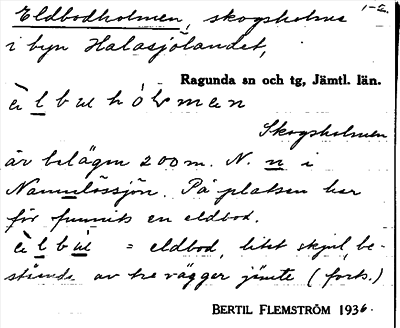 Eldbodholmen, skogsholme 1-2.
i byn Halasjölandet,
Ragunda sn och tg, Jämtl. län.
Skogsholmen
är belägen 200 m. N. n i
Namnlössjön. På platsen har
förr funnits en eldbod.
= eldbod, litet skjul, be-
stående av tre väggar jämte (forts.)
BERTIL FLEMSTRÖM 1936.